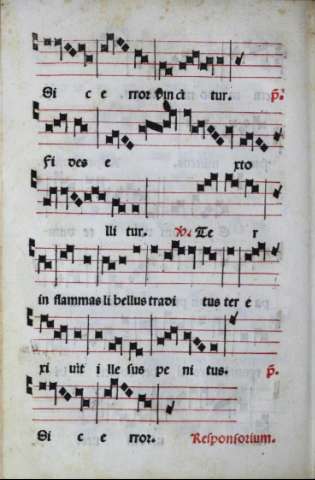 Si c e rror vinci tur. p.
Fi des e xto
lli tur. V. Te r
in flammas li bellus tradi tus ter e
xi uit i lle sus pe ni tus. p.
Si c e rror. Responsorium.